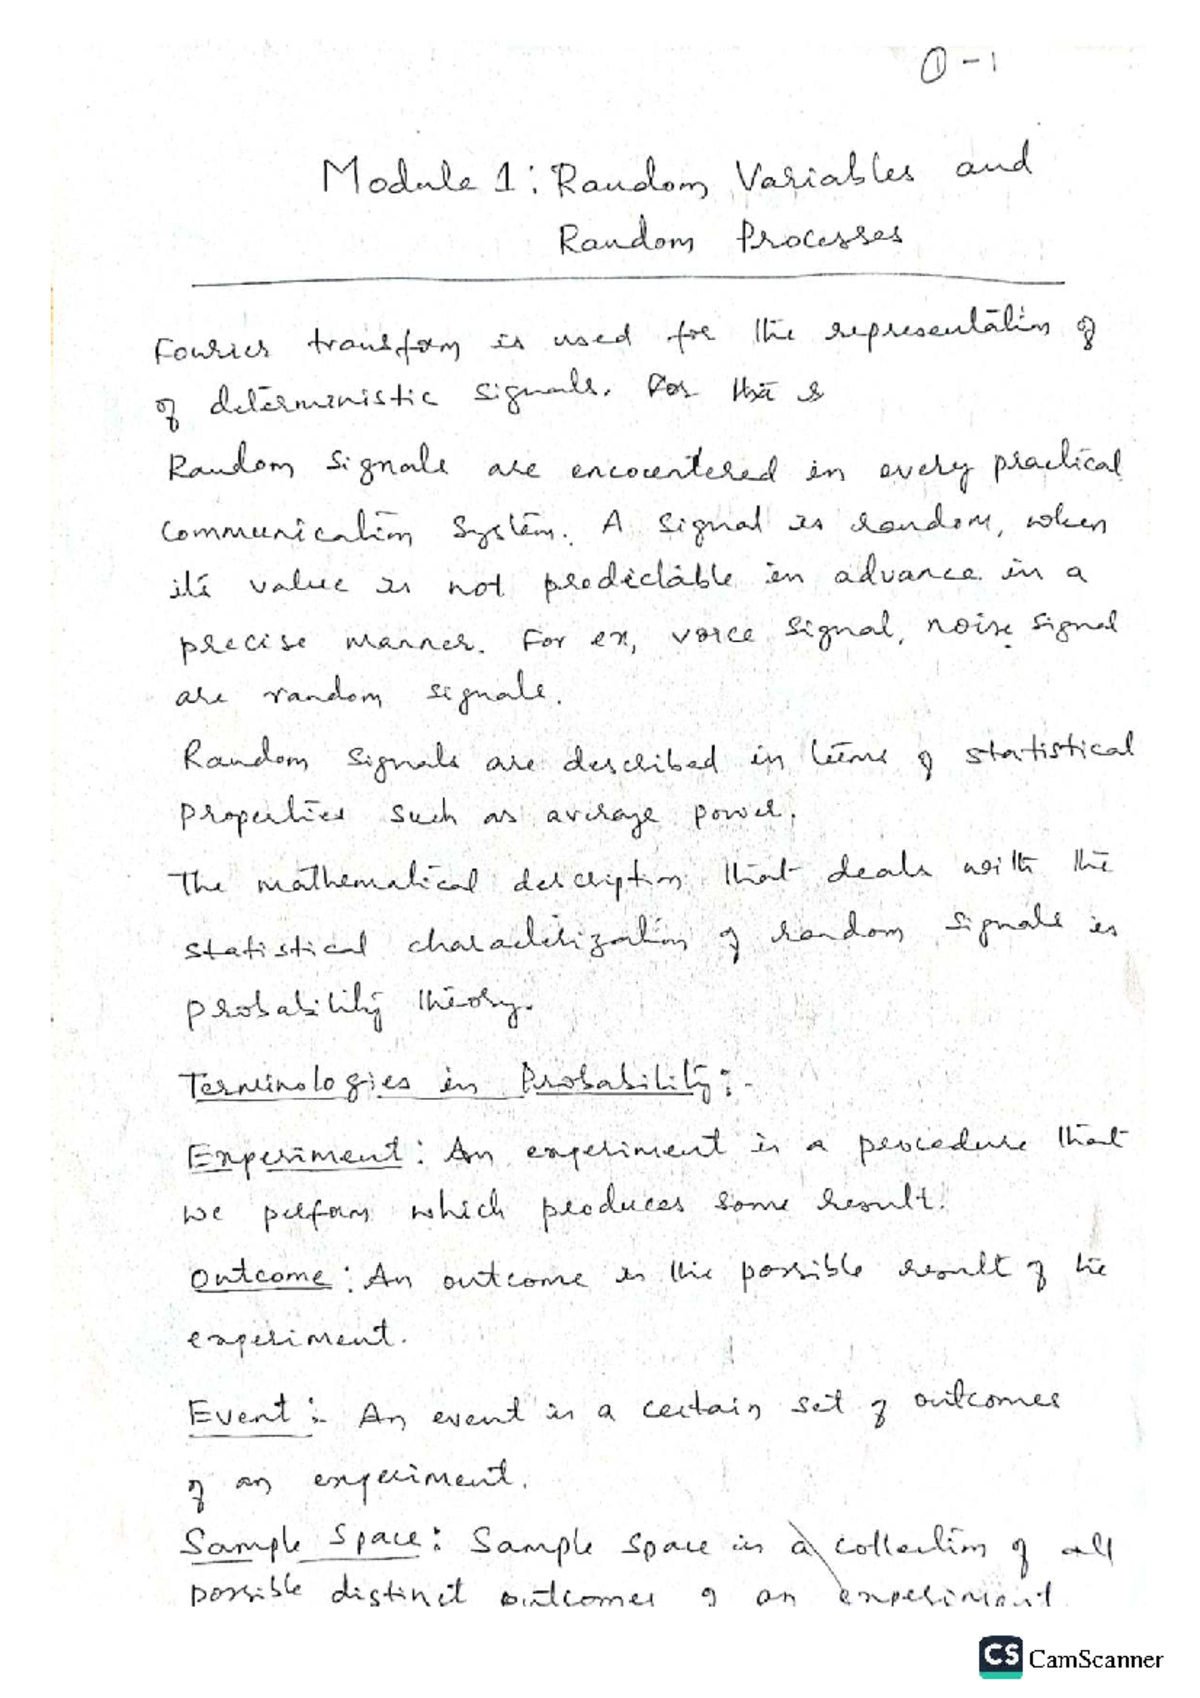 ①-1
Module 1: Random Variables and
Random Processes
Fourier transform is used for the representation of
of deterministic signals. For
Random signals are encountered in every practical
communication system. A signal is random, when
its value is not predictable in advance in a
precise manner. For ex, voice signal, noise signal
are random signals.
Random signals are described in terms of statistical
properties such as average power.
The mathematical description that deals with the
statistical characterization of random signals is
probability theory.
Terminologies in Probability:-
Experiment: An experiment is a procedure that
we perform which produces some result.
Outcome: An outcome is the possible result of the
experiment.
Event:- An event is a certain set of outcomes
of an experiment.
Sample Space: Sample space is a collection of all
possible distinct outcomes of an experiment
CS CamScanner